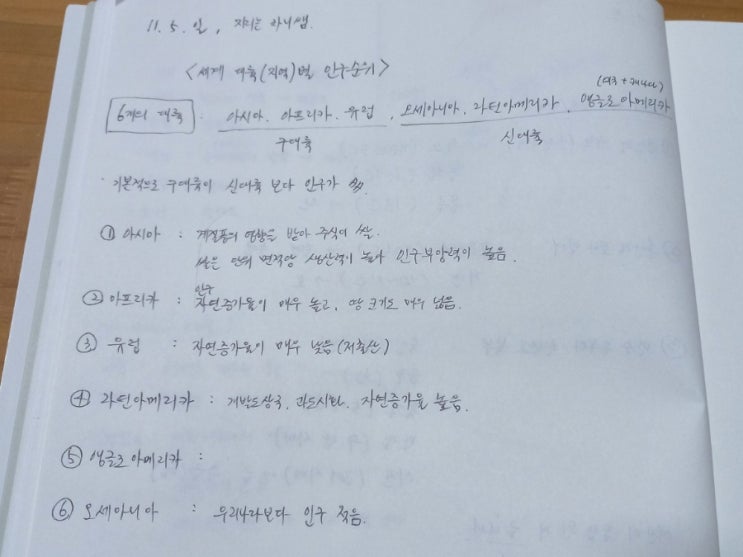 11. 5. 일, 지리는 하니쌤.
<세계 대륙(지역)별 인구순위>
(미국 + 캐나다)
6개의 대륙 : 아시아, 아프리카, 유럽, 오세아니아, 라틴아메리카, 앵글로아메리카
구대륙 신대륙
· 기본적으로 구대륙이 신대륙 보다 인구가 多.
① 아시아 : 계절풍의 영향을 받아 주식이 쌀.
쌀은 단위 면적당 생산력이 높아 인구부양력이 높음.
인구
② 아프리카 : 자연증가율이 매우 높고, 땅 크기도 매우 넓음.
③ 유럽 : 자연증가율이 매우 낮음(저출산)
④ 라틴아메리카 : 개발도상국, 과도시화, 자연증가율 높음.
⑤ 앵글로아메리카 :
⑥ 오세아니아 : 우리나라보다 인구 적음.